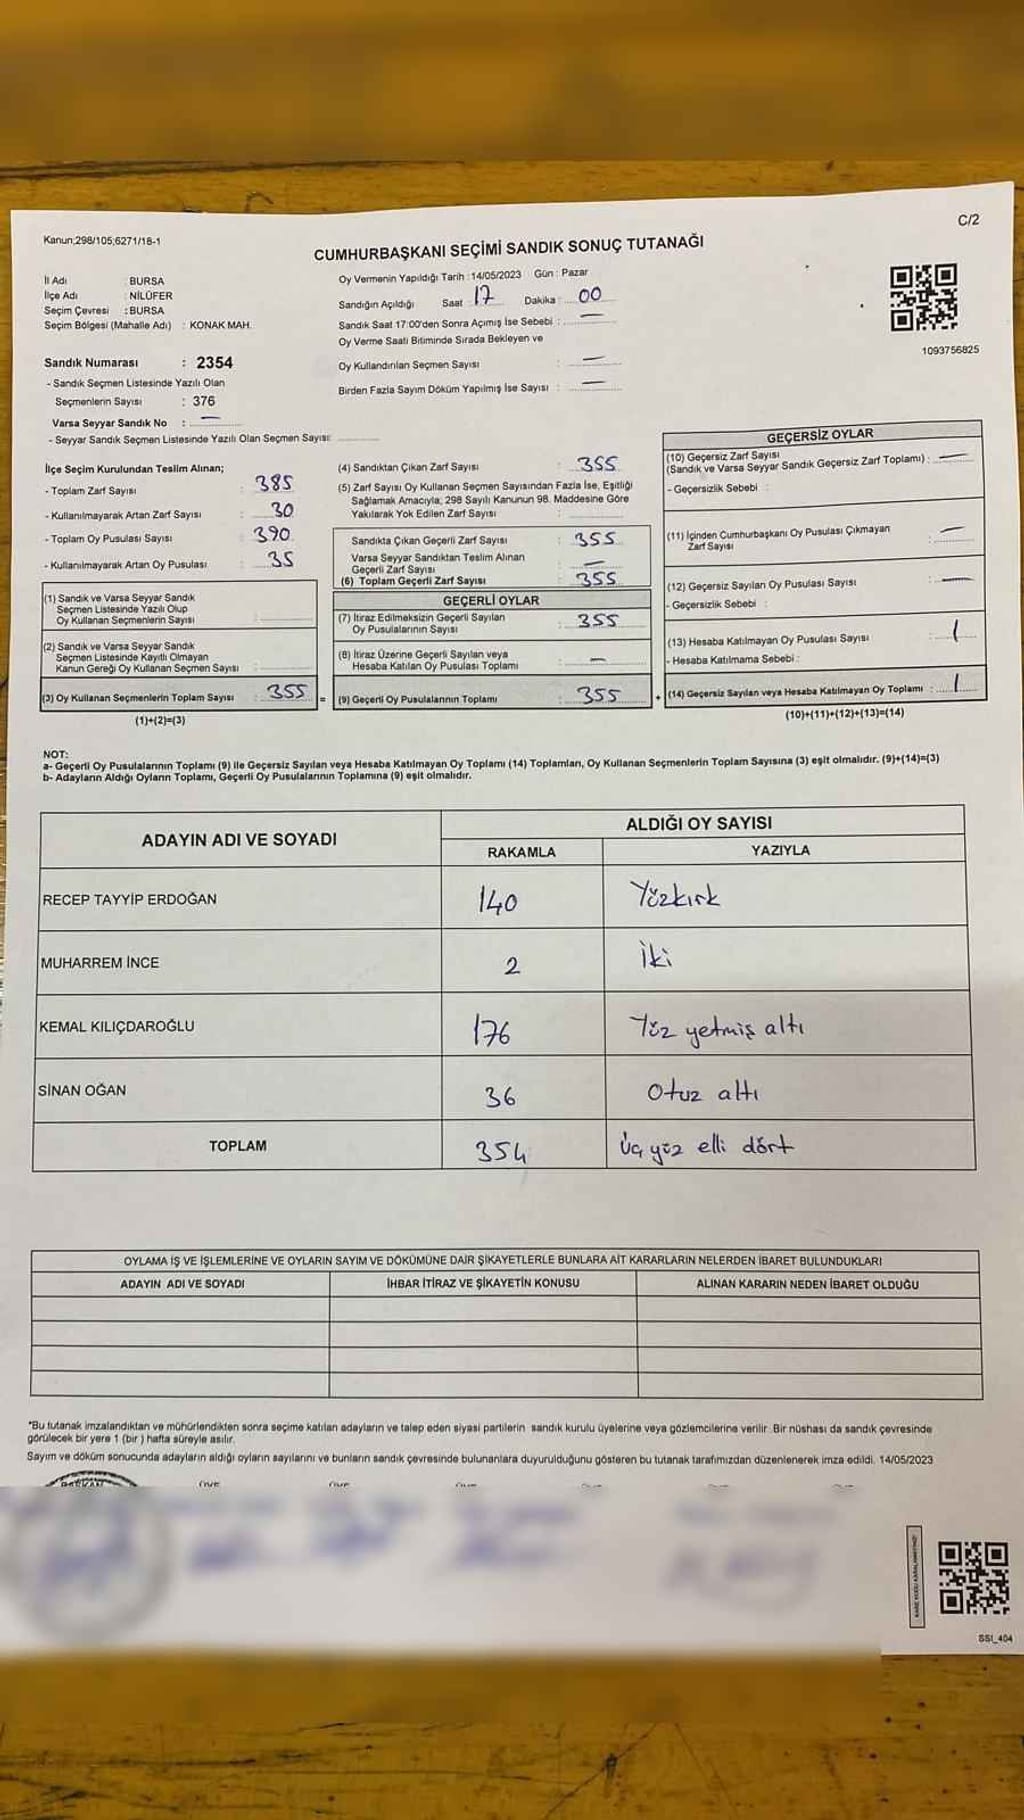 C/2
Kanun;298/105;6271/18-1
CUMHURBAŞKANI SEÇİMİ SANDIK SONUÇ TUTANAĞI
İl Adı : BURSA
İlçe Adı : NİLÜFER
Seçim Çevresi : BURSA
Seçim Bölgesi (Mahalle Adı) : KONAK MAH.
Oy Vermenin Yapıldığı Tarih : 14/05/2023 Gün : Pazar
Sandığın Açıldığı Saat 17 Dakika : 00
Sandık Saat 17:00'den Sonra Açımış İse Sebebi : —
Oy Verme Saati Bitiminde Sırada Bekleyen ve
Oy Kullandırılan Seçmen Sayısı : —
Birden Fazla Sayım Döküm Yapılmış İse Sayısı : —
1093756825
Sandık Numarası : 2354
- Sandık Seçmen Listesinde Yazılı Olan
Seçmenlerin Sayısı : 376
Varsa Seyyar Sandık No : —
- Seyyar Sandık Seçmen Listesinde Yazılı Olan Seçmen Sayısı:
İlçe Seçim Kurulundan Teslim Alınan;
- Toplam Zarf Sayısı : 385
- Kullanılmayarak Artan Zarf Sayısı : 30
- Toplam Oy Pusulası Sayısı : 390
- Kullanılmayarak Artan Oy Pusulası : 35
(1) Sandık ve Varsa Seyyar Sandık
Seçmen Listesinde Yazılı Olup
Oy Kullanan Seçmenlerin Sayısı :
(2) Sandık ve Varsa Seyyar Sandık
Seçmen Listesinde Kayıtlı Olmayan
Kanun Gereği Oy Kullanan Seçmen Sayısı :
(3) Oy Kullanan Seçmenlerin Toplam Sayısı : 355 =
(1)+(2)=(3)
(4) Sandıktan Çıkan Zarf Sayısı : 355
(5) Zarf Sayısı Oy Kullanan Seçmen Sayısından Fazla İse, Eşitliği
Sağlamak Amacıyla, 298 Sayılı Kanunun 98. Maddesine Göre
Yakılarak Yok Edilen Zarf Sayısı :
Sandıkta Çıkan Geçerli Zarf Sayısı : 355
Varsa Seyyar Sandıktan Teslim Alınan
Geçerli Zarf Sayısı : —
(6) Toplam Geçerli Zarf Sayısı : 355
GEÇERLİ OYLAR
(7) İtiraz Edilmeksizin Geçerli Sayılan
Oy Pusulalarının Sayısı : 355
(8) İtiraz Üzerine Geçerli Sayılan veya
Hesaba Katılan Oy Pusulası Toplamı : —
(9) Geçerli Oy Pusulalarının Toplamı : 355 +
GEÇERSİZ OYLAR
(10) Geçersiz Zarf Sayısı
(Sandık ve Varsa Seyyar Sandık Geçersiz Zarf Toplamı) : —
- Geçersizlik Sebebi :
(11) İçinden Cumhurbaşkanı Oy Pusulası Çıkmayan
Zarf Sayısı : —
(12) Geçersiz Sayılan Oy Pusulası Sayısı : —
- Geçersizlik Sebebi :
(13) Hesaba Katılmayan Oy Pusulası Sayısı : 1
- Hesaba Katılmama Sebebi :
(14) Geçersiz Sayılan veya Hesaba Katılmayan Oy Toplamı : 1
(10)+(11)+(12)+(13)=(14)
NOT:
a- Geçerli Oy Pusulalarının Toplamı (9) ile Geçersiz Sayılan veya Hesaba Katılmayan Oy Toplamı (14) Toplamları, Oy Kullanan Seçmenlerin Toplam Sayısına (3) eşit olmalıdır. (9)+(14)=(3)
b- Adayların Aldığı Oyların Toplamı, Geçerli Oy Pusulalarının Toplamına (9) eşit olmalıdır.
ADAYIN ADI VE SOYADI ALDIĞI OY SAYISI
RAKAMLA YAZIYLA
RECEP TAYYİP ERDOĞAN 140 Yüzkırk
MUHARREM İNCE 2 İki
KEMAL KILIÇDAROĞLU 176 Yüz yetmiş altı
SİNAN OĞAN 36 Otuz altı
TOPLAM 354 Üç yüz elli dört
OYLAMA İŞ VE İŞLEMLERİNE VE OYLARIN SAYIM VE DÖKÜMÜNE DAİR ŞİKAYETLERLE BUNLARA AİT KARARLARIN NELERDEN İBARET BULUNDUKLARI
ADAYIN ADI VE SOYADI İHBAR İTİRAZ VE ŞİKAYETİN KONUSU ALINAN KARARIN NEDEN İBARET OLDUĞU
*Bu tutanak imzalandıktan ve mühürlendikten sonra seçime katılan adayların ve talep eden siyasi partilerin sandık kurulu üyelerine veya gözlemcilerine verilir. Bir nüshası da sandık çevresinde
görülecek bir yere 1 (bir ) hafta süreyle asılır.
Sayım ve döküm sonucunda adayların aldığı oyların sayılarını ve bunların sandık çevresinde bulunanlara duyurulduğunu gösteren bu tutanak tarafımızdan düzenlenerek imza edildi. 14/05/2023
BAŞKAN ÜYE ÜYE ÜYE
SSI_404